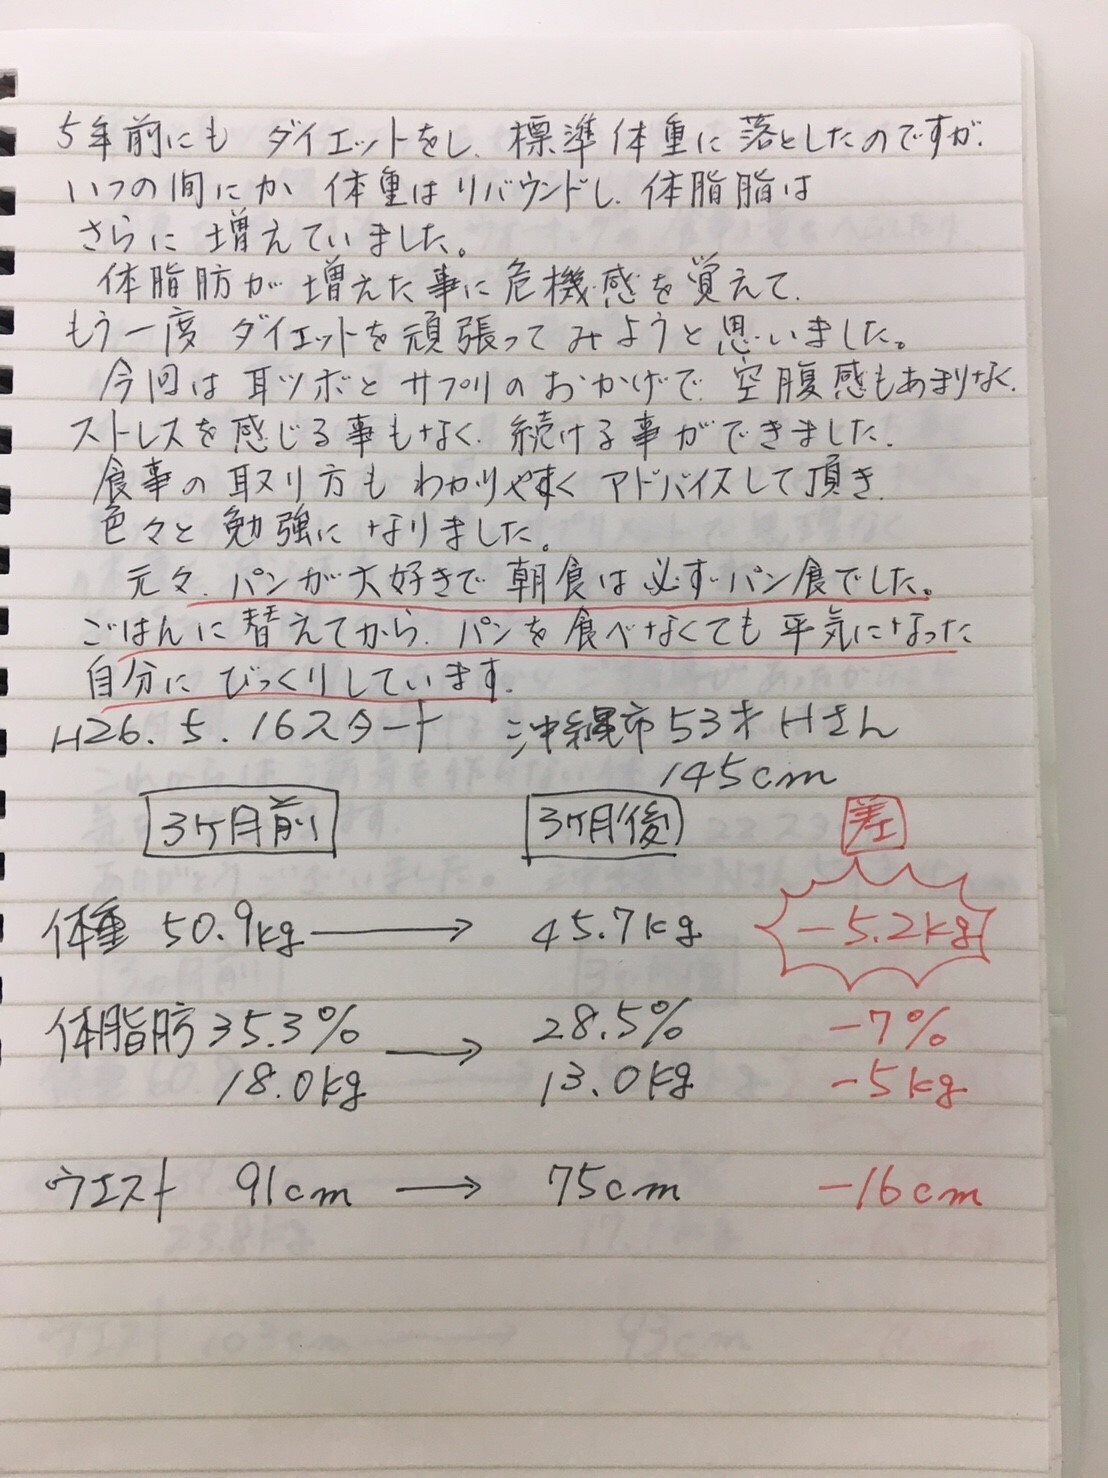 5年前にも ダイエットをし、標準体重に落としたのですが、
いつの間にか 体重はリバウンドし、体脂脂は
さらに 増えていました。
体脂肪が 増えた事に危機感を覚えて、
もう一度 ダイエットを頑張ってみようと思いました。
今回は 耳ツボと サプリのおかげで、空腹感もあまりなく、
ストレスを感じる事もなく、続ける事ができました。
食事の 取り方も わかりやすく アドバイスして頂き、
色々と 勉強になりました。
元々、パンが大好きで 朝食は必ずパン食でした。
ごはんに替えてから、パンを食べなくても平気になった
自分に びっくりしています。
H26.5.16スタート 沖縄市53才Hさん
145cm
3ケ月前 3ケ月後 差
体重 50.9kg → 45.7kg -5.2kg
体脂肪 35.3% → 28.5% -7%
18.0kg 13.0kg -5kg
ウエスト 91cm → 75cm -16cm